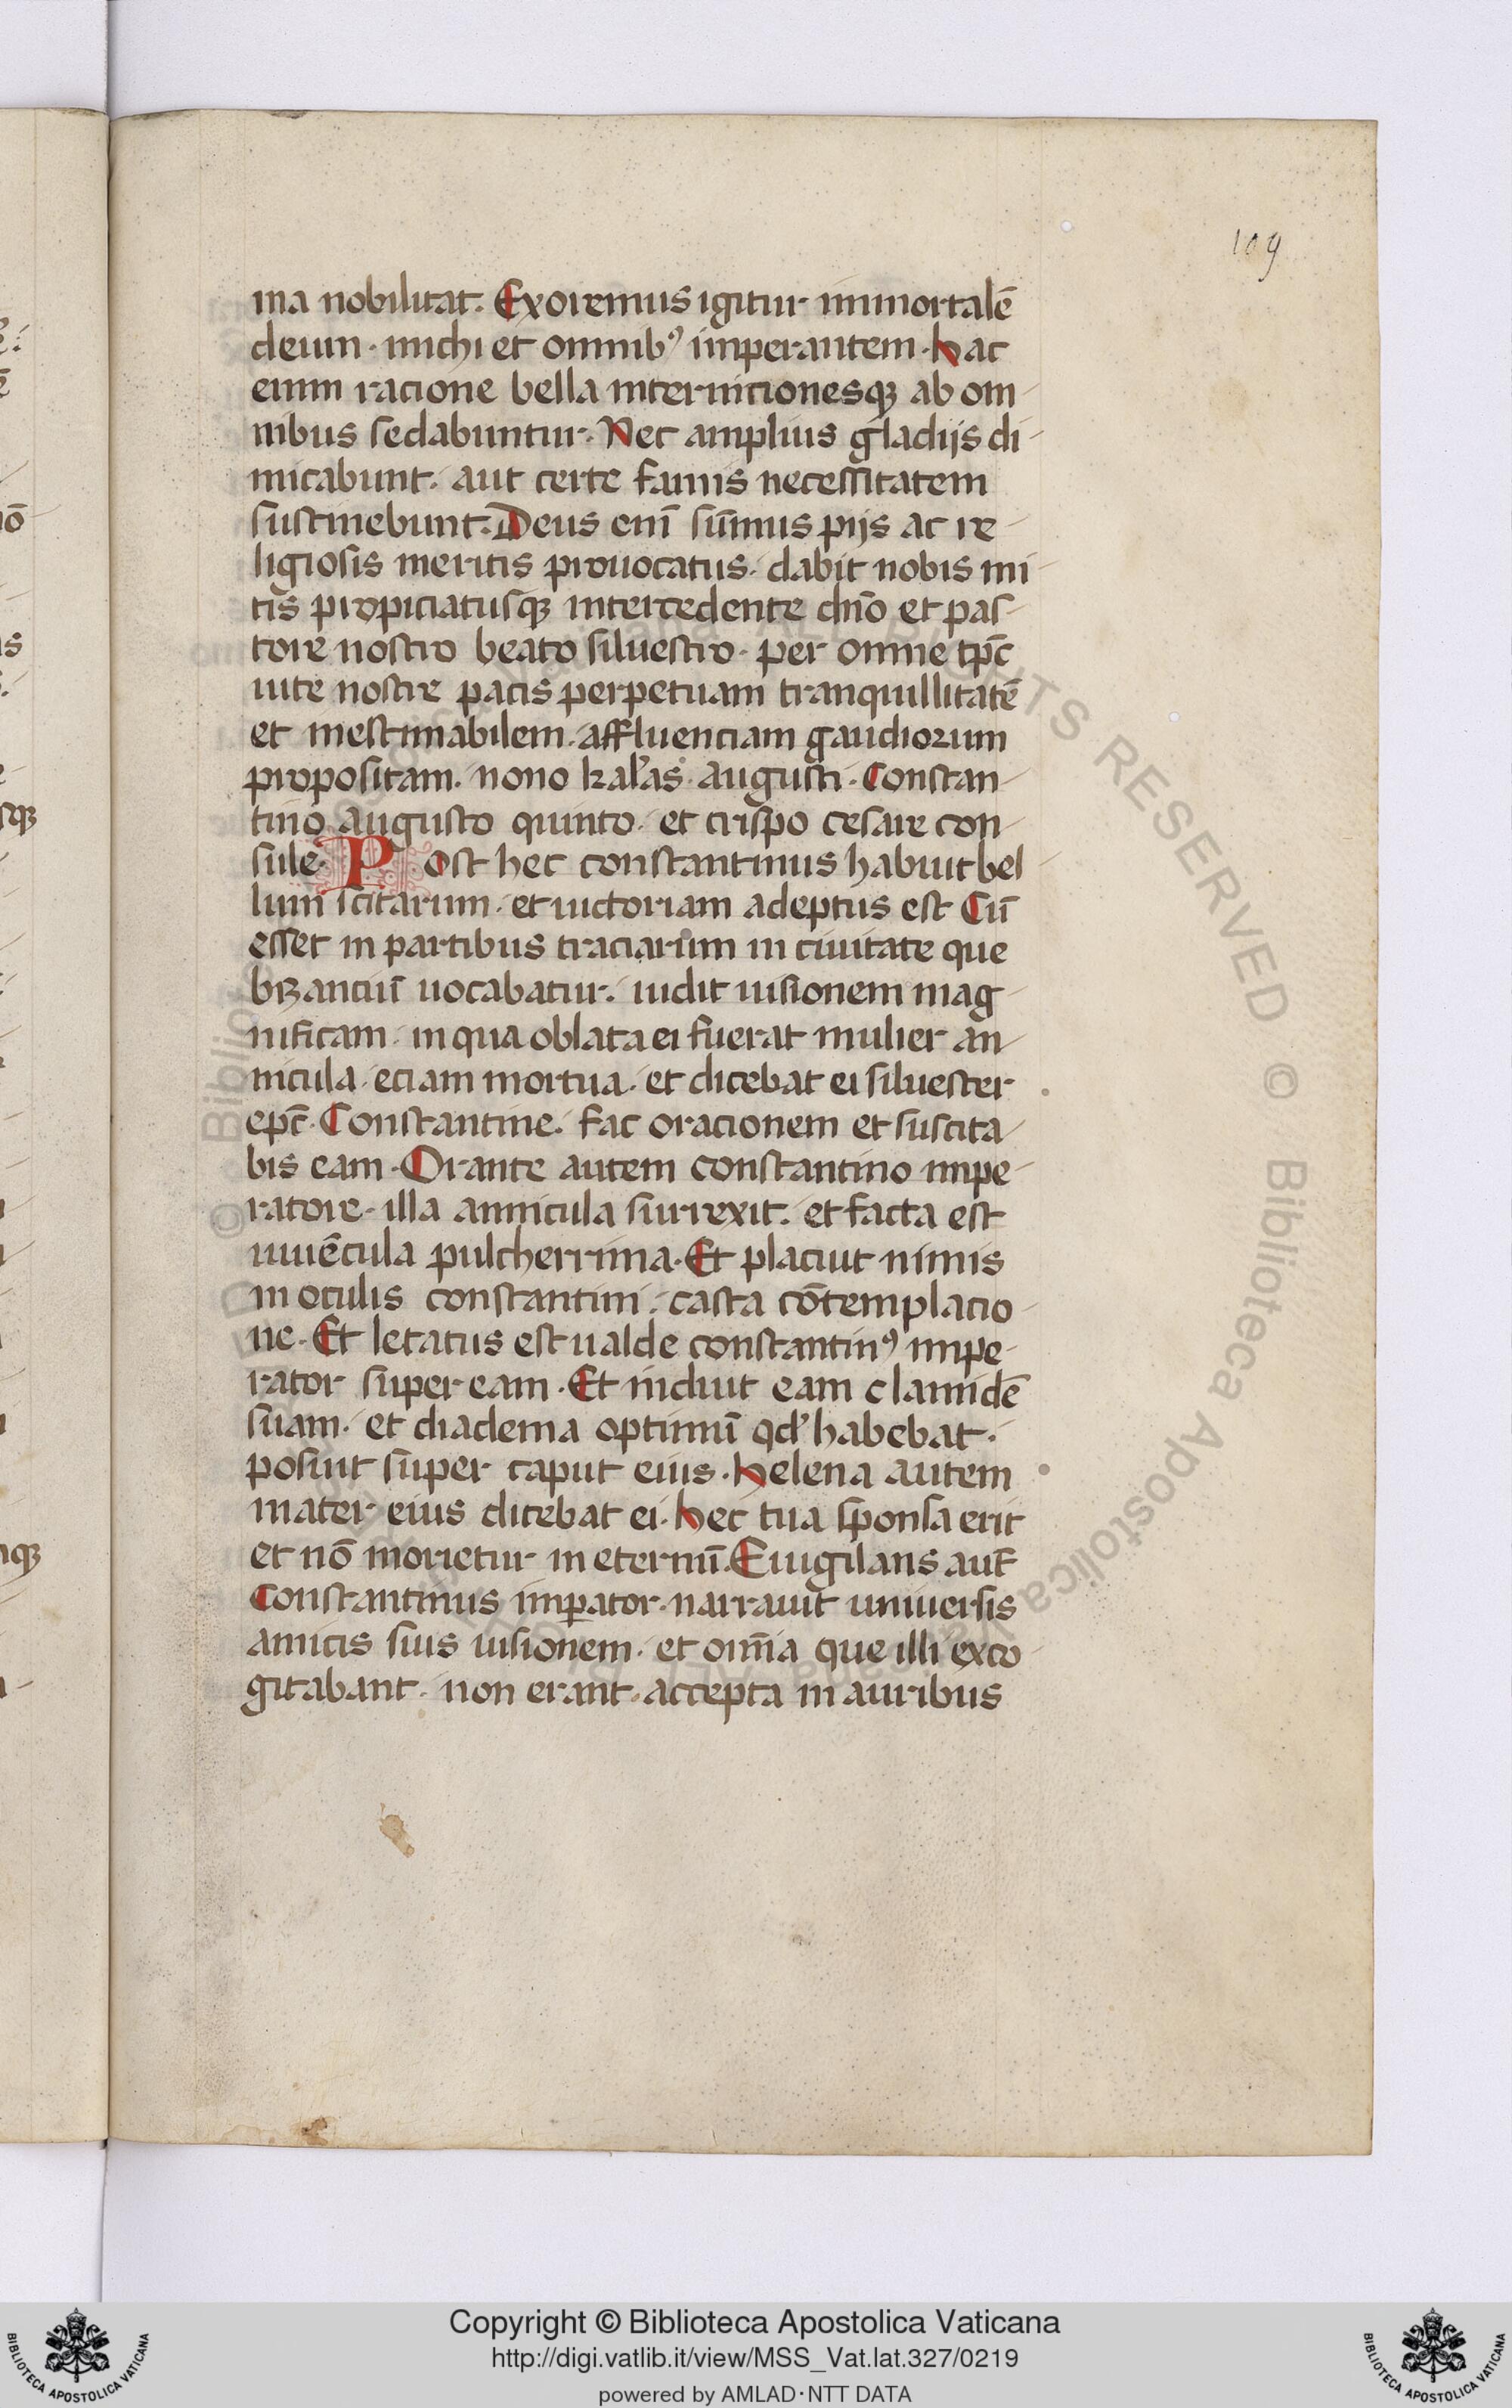 109
ina nobilitat. Exoremus igitur immortalē
deum · michi et omnibꝰ imperantem · hac
enim racione bella internicionesqꝫ ab om-
nibus sedabuntur. Nec amplius gladijs di-
micabunt. aut certe famis necessitatem
sustinebunt. Deus enī sūmus pijs ac re-
ligiosis meritis prouocatus. dabit nobis mi-
tis propiciatusqꝫ intercedente dn̄o et pas-
tore nostro beato siluestro. per omne tp̄c
uite nostre pacis perpetuam tranquillitatē
et inestimabilem. affluenciam gaudiorum
propositam. nono kal'as augusti. Constan-
tino augusto quinto. et crispo cesare con-
sule. Post hec constantinus habuit bel-
lum scitarum. et uictoriam adeptus est Cū
esset in partibus traciarum in ciuitate que
bizanciū uocabatur. uidit uisionem mag-
nificam. in qua oblata ei fuerat mulier an-
nicula. eciam mortua. et dicebat ei siluester
ep̄c. Constantine. fac oracionem et suscita-
bis eam. Orante autem constantino impe-
ratore. illa annicula surrexit. et facta est
iuuēcula pulcherrima. Et placuit nimis
in oculis constantini. casta cōtemplacio-
ne. Et letatus est ualde constantinꝰ impe-
rator super eam. Et induit eam clamidē
suam. et diadema optimū qd' habebat.
posuit super caput eius. helena autem
mater eius dicebat ei. hec tua sponsa erit
et nō morietur in eternū. Euigilans aut̄
Constantinus imꝑator. narrauit uniuersis
amicis suis uisionem. et om̄ia que illi exco-
gitabant. non erant. accepta in auribus
Copyright © Biblioteca Apostolica Vaticana
http://digi.vatlib.it/view/MSS_Vat.lat.327/0219
powered by AMLAD·NTT DATA
BIBLIOTECA APOSTOLICA VATICANA
BIBLIOTECA APOSTOLICA VATICANA